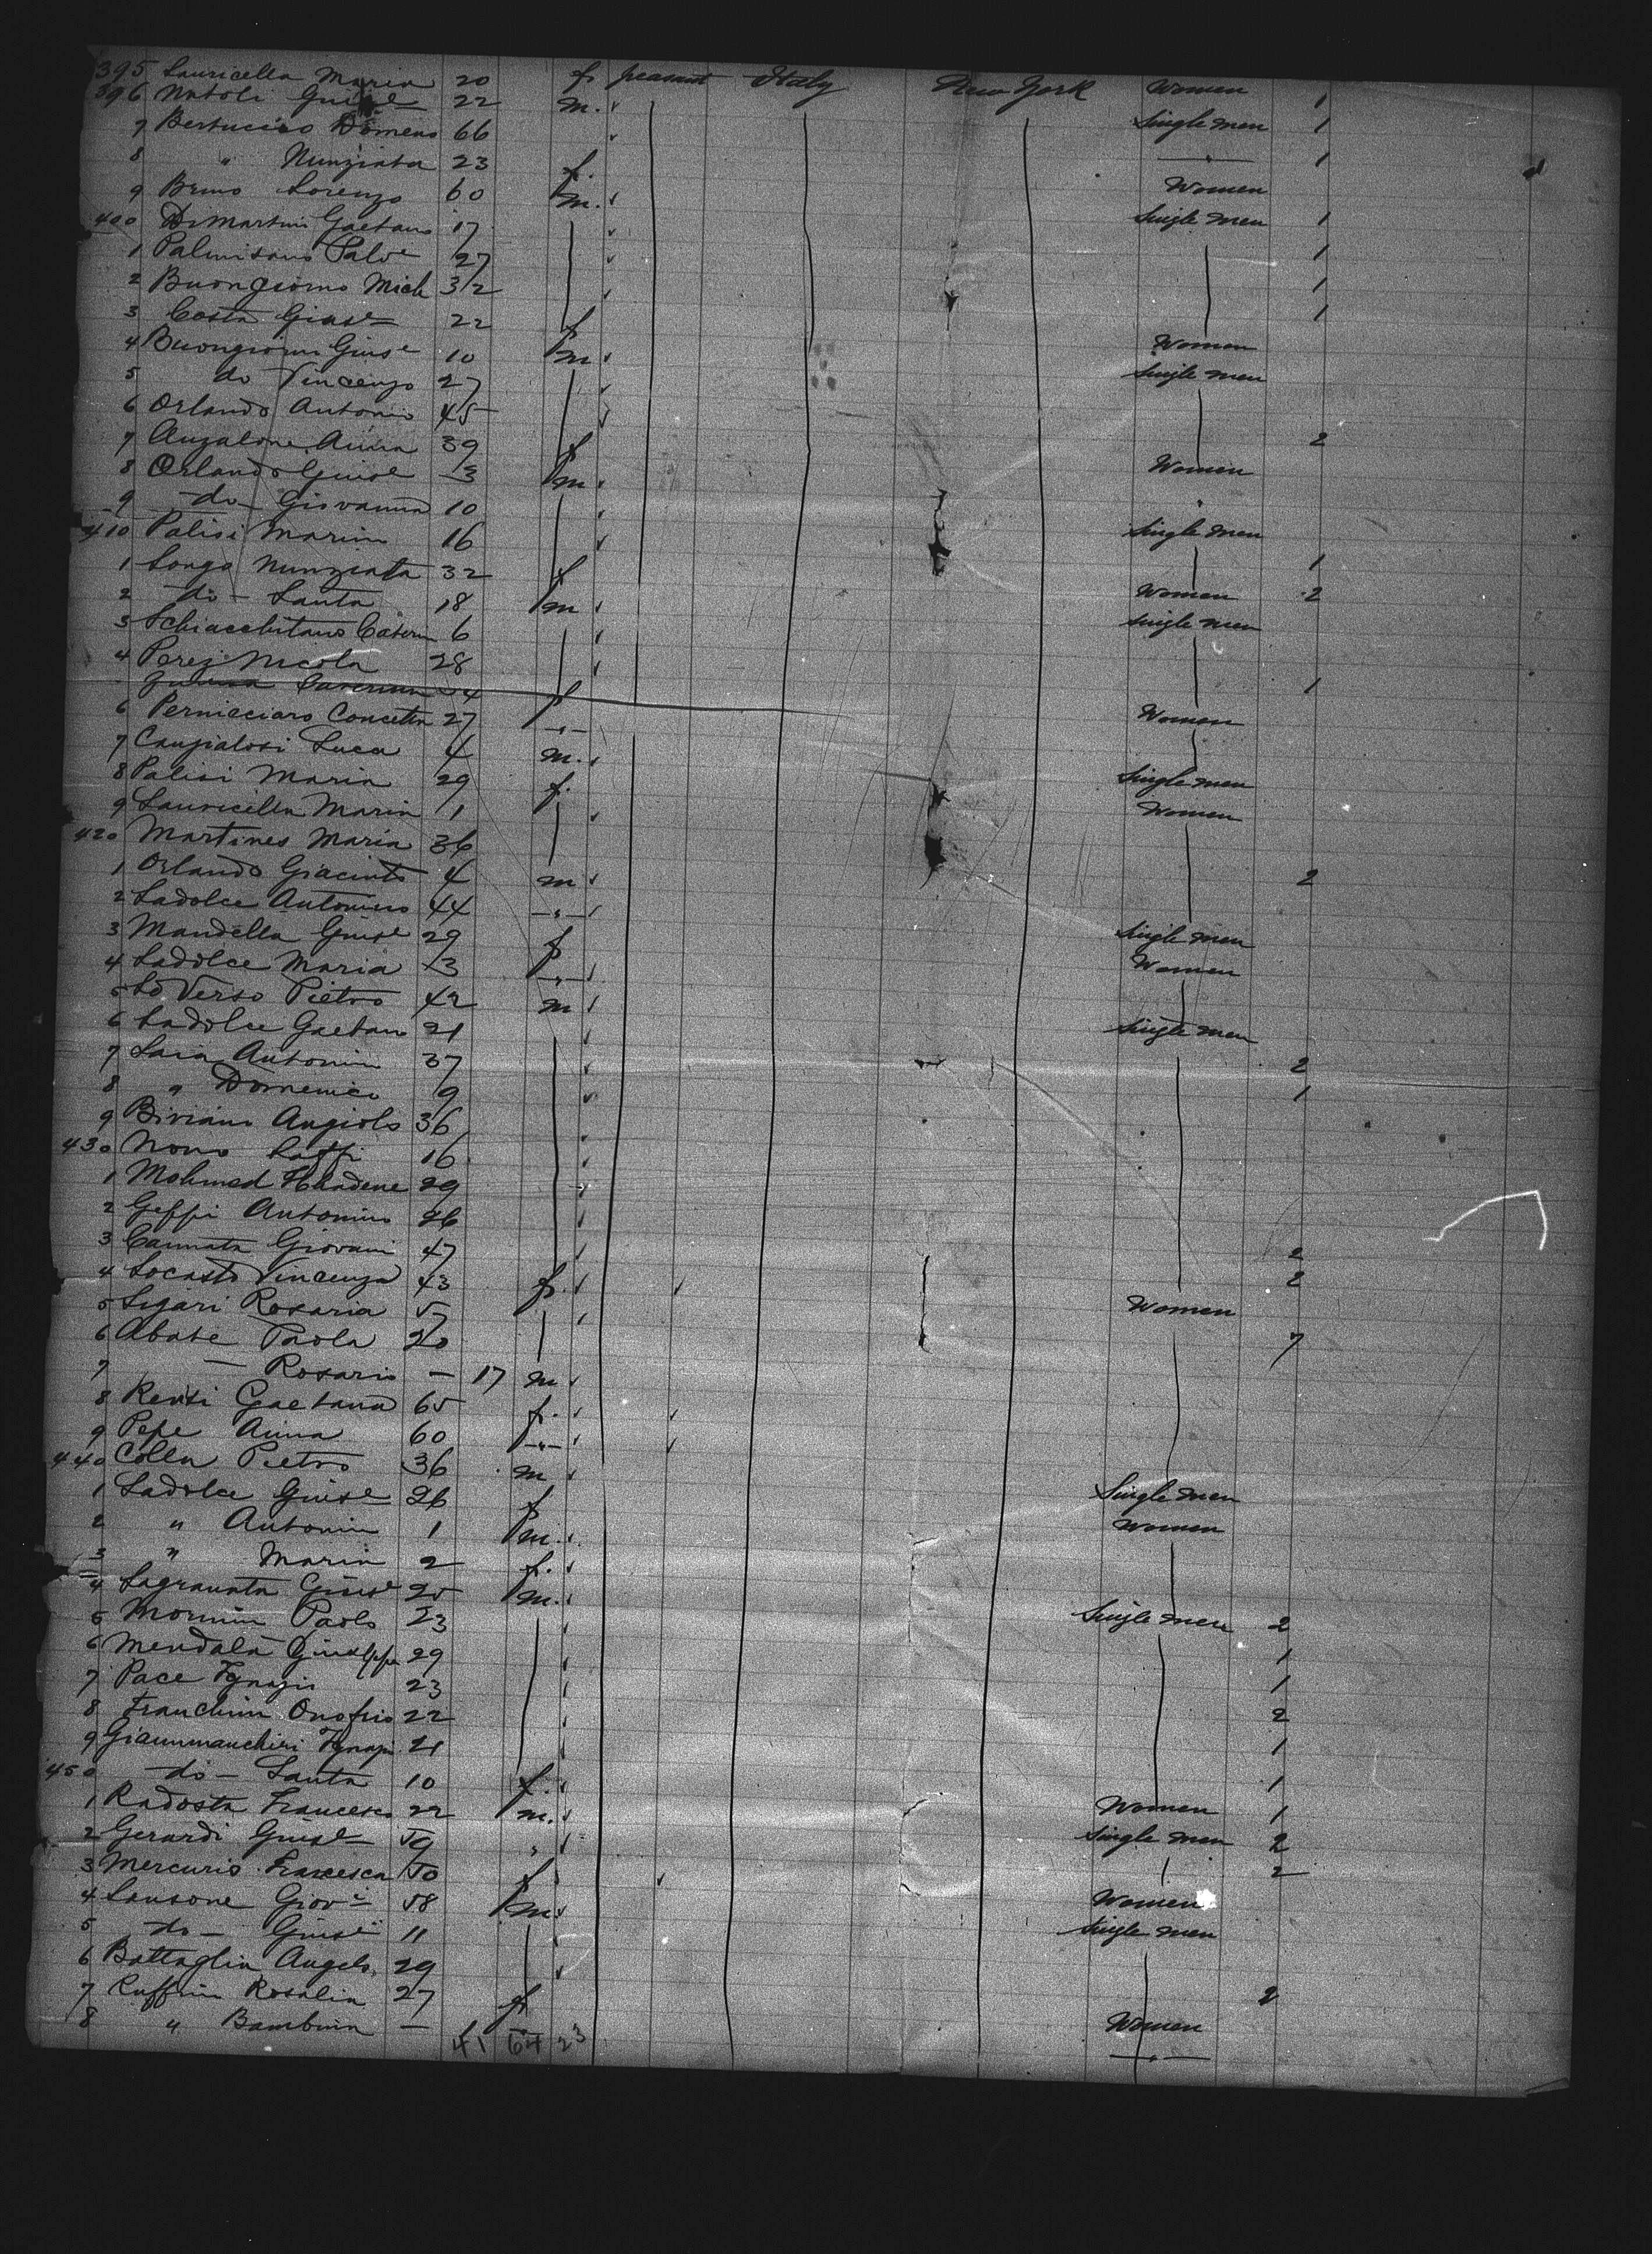 395 Lauricella Maria 20 f. peasant Italy New York Women
396 Natoli Guise 22 m. Single men 1
7 Bertuccio Domeno 66 1
8 " Nunziata 23 f. Women 1
9 Bruno Lorenzo 60 m. Single men
400 DiMartini Gaetano 17 1
1 Palmisano Salve 27 1
2 Buongiorno Mich 32 1
3 Costa Giuse 22 f Women 1
4 Buongiorno Giuse 10 m Single men
5 do Vincenzo 27
6 Orlando Antonio 45
7 Anzalone Anna 39 f Women 2
8 Orlando Giuse 3 m "
9 do Giovanna 10
410 Palisi Marin 16 Single men
1 Longo Nunziata 32 f Women 1
2 do Santa 18 m Single men 2
3 Schiacchitano Cater 6
4 Perez Nicola 28
Caterina 24 f Women 1
6 Perniciaro Concetta 27 "
7 Cangialosi Luca 4 m. Single men
8 Palisi Maria 29 f. Women
9 Lauricella Maria 1
420 Martines Maria 36
1 Orlando Giacinto 4 m 2
2 Ladolce Antonino 44 " Single men
3 Mandella Giuse 29 f Women
4 Ladolce Maria 3 "
5 Lo Verso Pietro 42 m Single men
6 Ladolce Gaetano 21
7 Laia Antonin 37 2
8 " Domenico 9 1
9 Biviano Angiolo 36
430 Nono 16
1 Mohmed 29
2 Geffi Antonino 26
3 Cannata Giovani 47 2
4 Locasto Vincenza 43 f. Women 2
5 Ligari Rosaria 57
6 Abate Paola 20 7
7 — Rosario — 17 m
8 Rensi Gaetana 65 f.
9 Pepe Anna 60 "
440 Colla Pietro 36 m Single men
1 Ladolce Giuse 26 f Women
2 " Antonin 1 m.
3 " Maria 2 f.
4 Lagranata Giuse 25 m. Single men 2
5 Mormin Paolo 23 1
6 Mendala Giuseppe 29 1
7 Pace Ignazio 23 2
8 Franchini Onofrio 22 1
9 Giammancheri Ignazi 21 1
450 do — Santa 10 f. Women 1
1 Radosta Francesco 22 m. Single men 2
2 Gerardi Giuse 59 " 2
3 Mercurio Francesca 50 f Women
4 Sansone Giov 58 m Single men
5 do — Giuse 11
6 Battaglia Angelo 29 2
7 Ruffin Rosalia 27 f Women
8 " Bambina — "
41 64 23